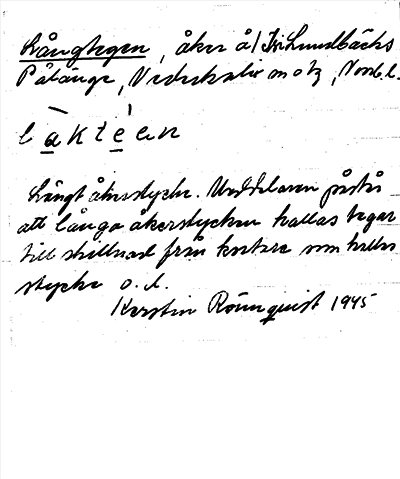 Långtegen, åker å/ Fr. Lundbäcks
Pålänge, Nederkalix snotz, Nordb.l.
l a k t e e n
Långt åkerstycke. Meddelaren påstår
att långa åkerstycken kallas tegar
till skillnad från kortare som kallas
stycke o.d.
Kerstin Rönnquist 1945